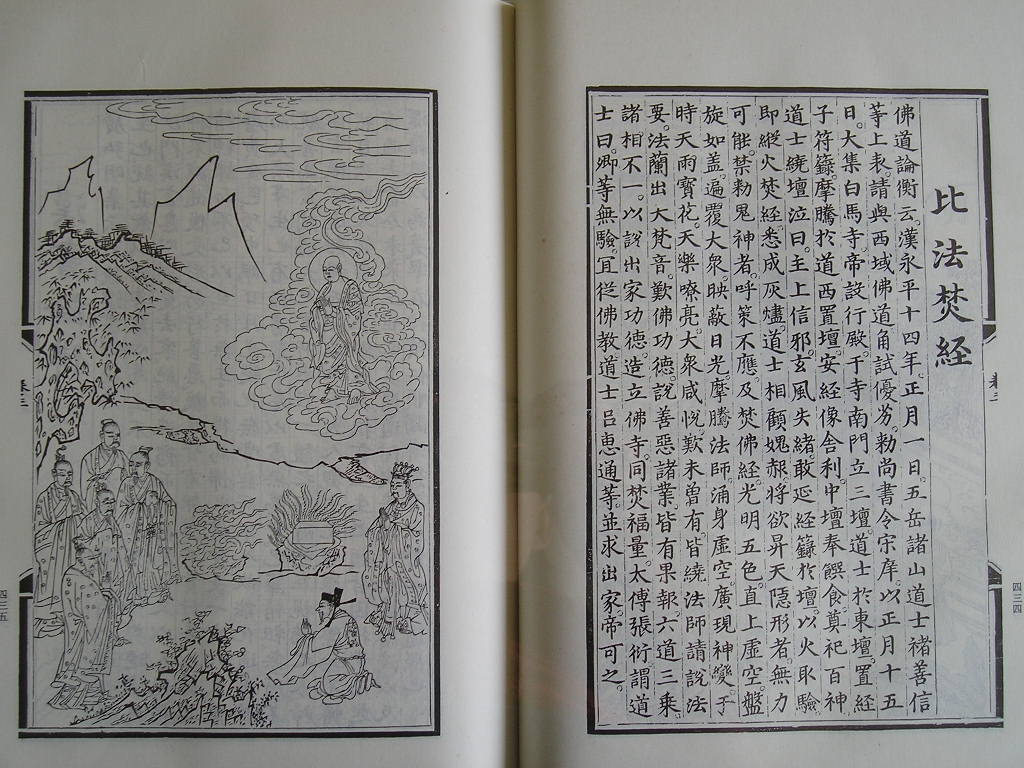 比法焚經
佛道論衡云。漢永平十四年。正月一日。五岳諸山道士褚善信
等上表。請與西域佛道角試優劣。勅尚書令宋庠。以正月十五
日。大集白馬寺。帝設行殿。于寺南門立三壇。道士於東壇置經
子符籙。摩騰於道西置壇。安經像舍利。中壇奉饌食。奠祀百神
道士繞壇泣曰。主上信邪。玄風失緒。敢延經籙於壇。以火取驗。
即縱火焚經。悉成灰燼。道士相顧媿赧。將欲昇天隱形者。無力
可能。禁勅鬼神者。呼策不應。及焚佛經。光明五色。直上虛空。盤
旋如蓋。遍覆大眾。映蔽日光。摩騰法師。涌身虛空。廣現神變。于
時天雨寶花。天樂嘹亮。大眾咸悅。歎未曾有。皆繞法師。請說法
要。法蘭出大梵音。歎佛功德。說善惡諸業。皆有果報。六道三乘。
諸相不一。以說出家功德。造立佛寺。同焚福量。太傅張衍謂道
士曰。卿等無驗。宜從佛教。道士呂惠通等。並求出家。帝可之。
卷三
四三四
卷三
四三五